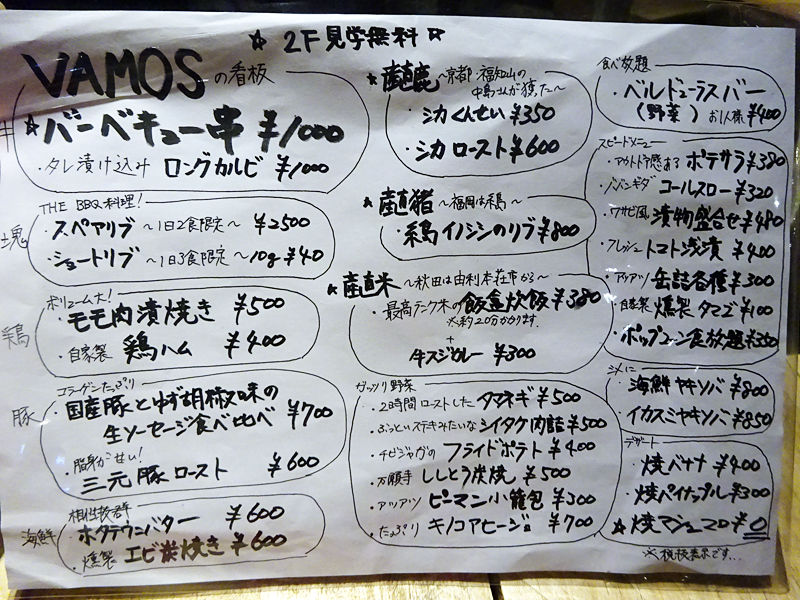 ☆ 2F見学無料 ☆
VAMOSの看板
牛
☆バーベキュー串 ¥1000
・タレ漬け込み ロングカルビ ¥1000
塊
THE BBQ料理!
・スペアリブ 〜1日2食限定〜 ¥2500
・ショートリブ 〜1日3食限定〜 10g ¥40
鶏
ボリューム大!
・モモ肉漬焼き ¥500
・自家製 鶏ハム ¥400
豚
コラーゲンたっぷり
・国産豚とゆず胡椒味の
生ソーセージ食べ比べ ¥700
・脂身が甘い!
三元豚ロースト ¥600
海鮮
相性抜群
・ホタテウニバター ¥600
・燻製 エビ炭焼き ¥600
★産直鹿 〜京都・福知山の
中島さんが獲た〜
・シカくんせい ¥350
・シカロースト ¥600
★産直猪 〜福岡は糸島〜
・糸島イノシシのリブ ¥800
★産直米 〜秋田は由利本荘市から〜
・最高ランク米の飯盒炊飯 ¥380
※約20分かかります.
+
牛スジカレー ¥300
ガッツリ野菜
・2時間ローストした タマネギ ¥500
・ぶっといステキみたいな シイタケ肉詰 ¥500
・チビジャガの フライドポテト ¥400
・万願寺 ししとう炭焼 ¥500
・アツアツ ピーマン小籠包 ¥300
・たっぷり キノコアヒージョ ¥700
食べ放題
・ベルドゥーラスバー
(野菜) お1人様 ¥400
スピードメニュー
・アウトドア感ある ポテサラ ¥380
・ババンギダ コールスロー ¥320
・ワサビ風 漬物盛合せ ¥480
・フレッシュ トマト浅漬 ¥400
・アツアツ 缶詰各種 ¥300
・自家製 燻製タマゴ ¥100
・ポップコーン食放題 ¥350
シメに
・海鮮ヤキソバ ¥800
・イカスミヤキソバ ¥850
デザート
・焼バナナ ¥400
・焼パイナップル ¥300
★焼マシュマロ ¥0
※税抜表示です...